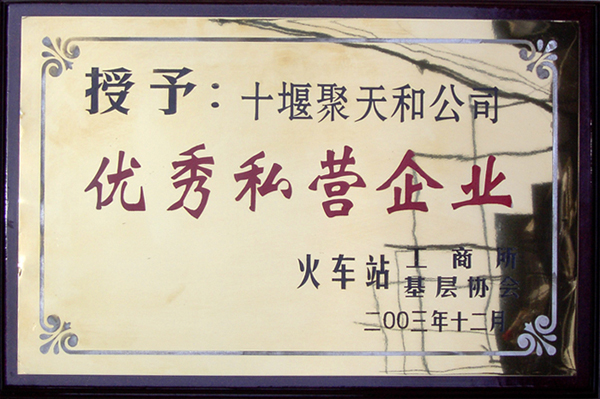 授予：十堰聚天和公司
优秀私营企业
火车站 工商所
基层协会
二00三年十二月